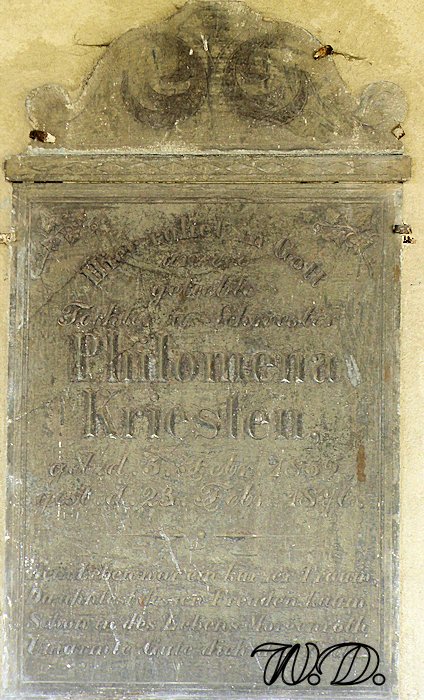 Hier ruhet in Gott
unsere
geliebte
Tochter u. Schwester
Philomena
Kriesten,
geb. d. 5. Febr. 18
gest. d. 23. Febr. 18
Dein Leben war ein kurzer Traum,
Du fühltest seine Freuden kaum
Schon in des Lebens Morgenroth
Umarmte Gute dich
W.D.